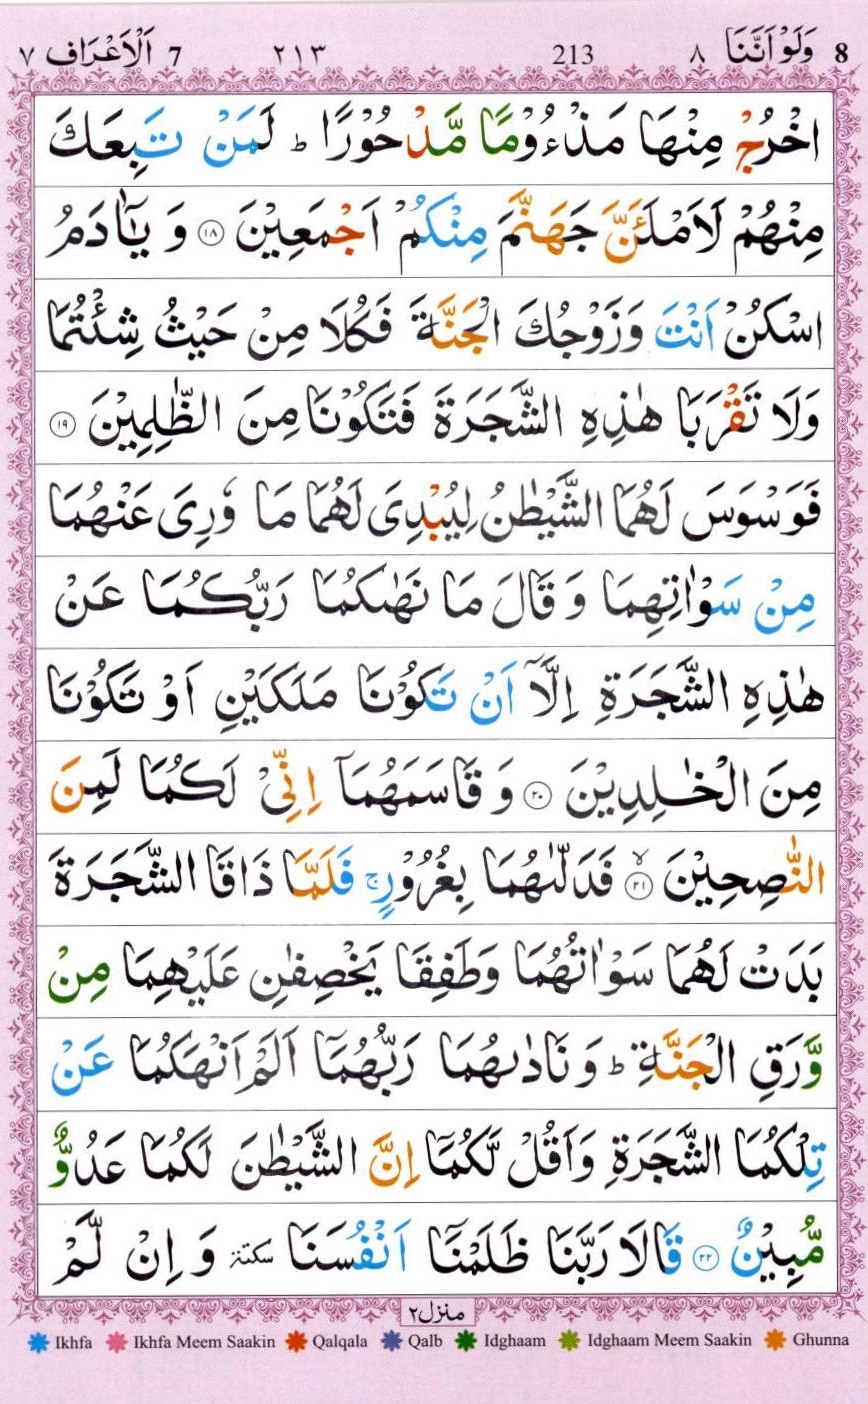 8 وَلَوْ اَنَّنَا ٨ 213 ٢١٣ 7 اَلْاَعْرَاف ٧
اخْرُجْ مِنْهَا مَذْءُوْمًا مَّدْحُوْرًا ؕ لَمَنْ تَبِعَكَ
مِنْهُمْ لَاَمْلَـَٔنَّ جَهَنَّمَ مِنْكُمْ اَجْمَعِيْنَ ۝۱۸ وَ يٰۤاٰدَمُ
اسْكُنْ اَنْتَ وَزَوْجُكَ الْجَنَّةَ فَكُلَا مِنْ حَيْثُ شِئْتُمَا
وَلَا تَقْرَبَا هٰذِهِ الشَّجَرَةَ فَتَكُوْنَا مِنَ الظّٰلِمِيْنَ ۝۱۹
فَوَسْوَسَ لَهُمَا الشَّيْطٰنُ لِيُبْدِيَ لَهُمَا مَا وٗرِيَ عَنْهُمَا
مِنْ سَوْاٰتِهِمَا وَ قَالَ مَا نَهٰىكُمَا رَبُّكُمَا عَنْ
هٰذِهِ الشَّجَرَةِ اِلَّاۤ اَنْ تَكُوْنَا مَلَكَيْنِ اَوْ تَكُوْنَا
مِنَ الْخٰلِدِيْنَ ۝۲۰ وَ قَاسَمَهُمَاۤ اِنِّيْ لَكُمَا لَمِنَ
النّٰصِحِيْنَ ۙ۝۲۱ فَدَلّٰىهُمَا بِغُرُوْرٍ ۚ فَلَمَّا ذَاقَا الشَّجَرَةَ
بَدَتْ لَهُمَا سَوْاٰتُهُمَا وَطَفِقَا يَخْصِفٰنِ عَلَيْهِمَا مِنْ
وَّرَقِ الْجَنَّةِ ؕ وَ نَادٰىهُمَا رَبُّهُمَاۤ اَلَمْ اَنْهَكُمَا عَنْ
تِلْكُمَا الشَّجَرَةِ وَاَقُلْ لَّكُمَاۤ اِنَّ الشَّيْطٰنَ لَكُمَا عَدُوٌّ
مُّبِيْنٌ ۝۲۲ قَالَا رَبَّنَا ظَلَمْنَاۤ اَنْفُسَنَا سكتة وَ اِنْ لَّمْ
منزل ٢
Ikhfa Ikhfa Meem Saakin Qalqala Qalb Idghaam Idghaam Meem Saakin Ghunna